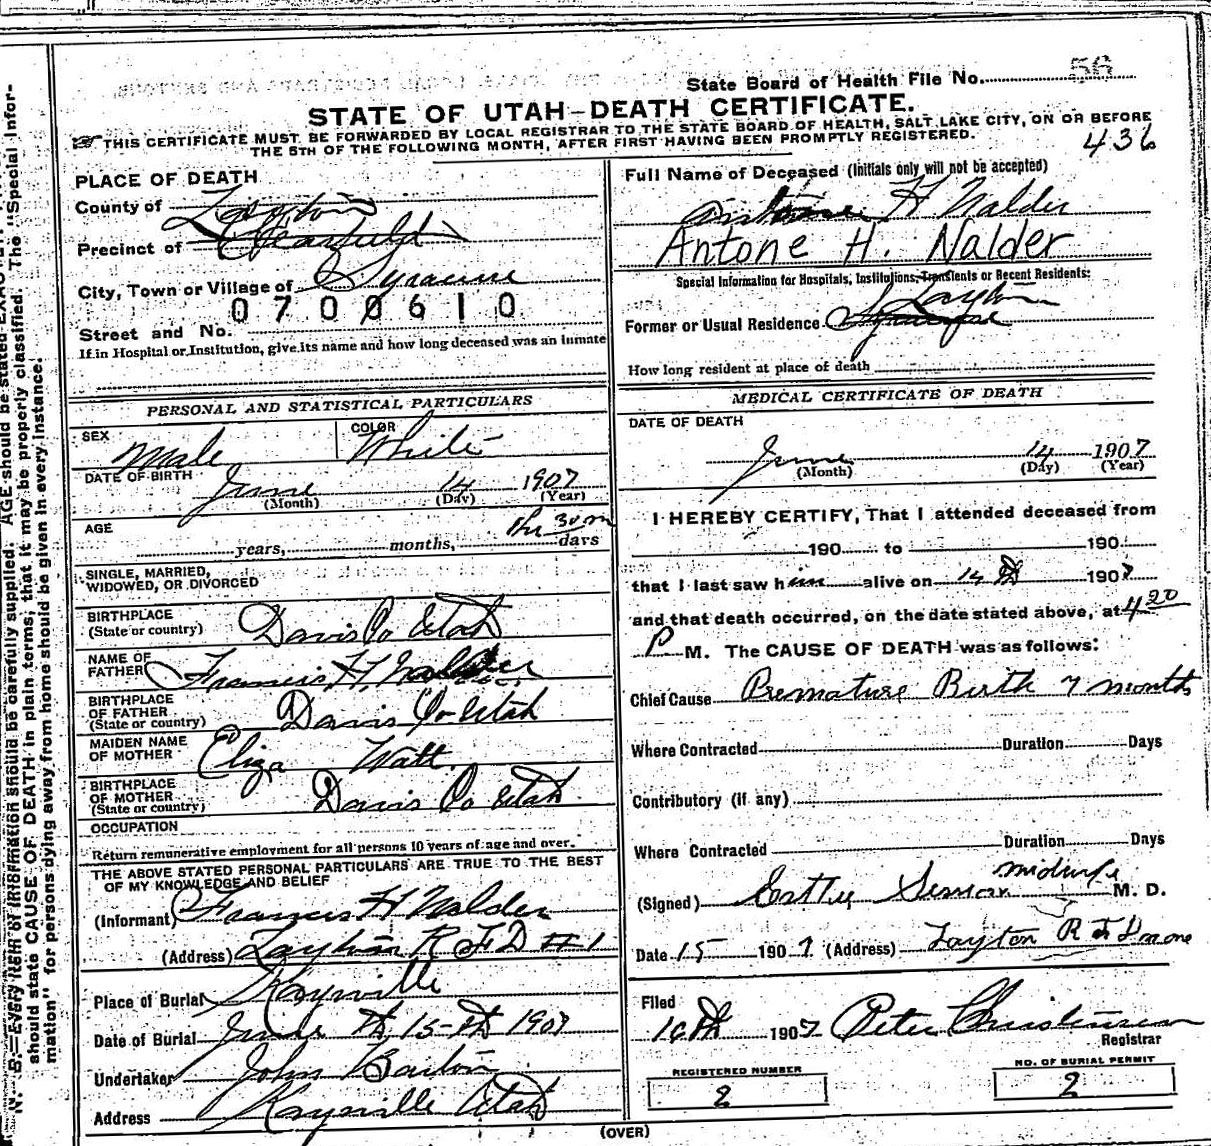 State Board of Health File No. 56
STATE OF UTAH—DEATH CERTIFICATE.
THIS CERTIFICATE MUST BE FORWARDED BY LOCAL REGISTRAR TO THE STATE BOARD OF HEALTH, SALT LAKE CITY, ON OR BEFORE
THE 5TH OF THE FOLLOWING MONTH, AFTER FIRST HAVING BEEN PROMPTLY REGISTERED.
436
PLACE OF DEATH
County of Layton
Precinct of Clearfield
City, Town or Village of Syracuse
0700610
Street and No.
If in Hospital or Institution, give its name and how long deceased was an inmate
Full Name of Deceased (Initials only will not be accepted)
Antone H Nalder
Antone H. Nalder
Special Information for Hospitals, Institutions, Transients or Recent Residents:
Layton
Former or Usual Residence Syracuse
How long resident at place of death
PERSONAL AND STATISTICAL PARTICULARS
SEX Male
COLOR White
DATE OF BIRTH June 14 1907
(Month) (Day) (Year)
AGE 1 hr 30 m
years, months, days
SINGLE, MARRIED,
WIDOWED, OR DIVORCED
BIRTHPLACE
(State or country) Davis Co Utah
NAME OF
FATHER Francis H. Nalder
BIRTHPLACE
OF FATHER
(State or country) Davis Co Utah
MAIDEN NAME
OF MOTHER Eliza Watt.
BIRTHPLACE
OF MOTHER
(State or country) Davis Co Utah
OCCUPATION
Return remunerative employment for all persons 10 years of age and over.
THE ABOVE STATED PERSONAL PARTICULARS ARE TRUE TO THE BEST
OF MY KNOWLEDGE AND BELIEF
(Informant) Francis H Nalder
(Address) Layton R F D # 1
Place of Burial Kaysville
Date of Burial June th 15-th 1907
Undertaker John Barton
Address Kaysville Utah
MEDICAL CERTIFICATE OF DEATH
DATE OF DEATH
June 14 1907
(Month) (Day) (Year)
I HEREBY CERTIFY, That I attended deceased from
190 to 190
that I last saw him alive on 14 th 1907
and that death occurred, on the date stated above, at 4 20
P M. The CAUSE OF DEATH was as follows:
Chief Cause Premature Birth 7 months
Where Contracted Duration Days
Contributory (if any)
Where Contracted Duration Days
midwife
(Signed) Esther M. D.
Date 15 1907 (Address) Layton R F D no one
Filed
16th 1907 Peter Christensen
Registrar
REGISTERED NUMBER
2
NO. OF BURIAL PERMIT
2
(OVER)
N. B.—Every item of information should be carefully supplied. AGE should be stated
should state CAUSE OF DEATH in plain terms, that it may be properly classified. The "Special Infor-
mation" for persons dying away from home should be given in every instance.